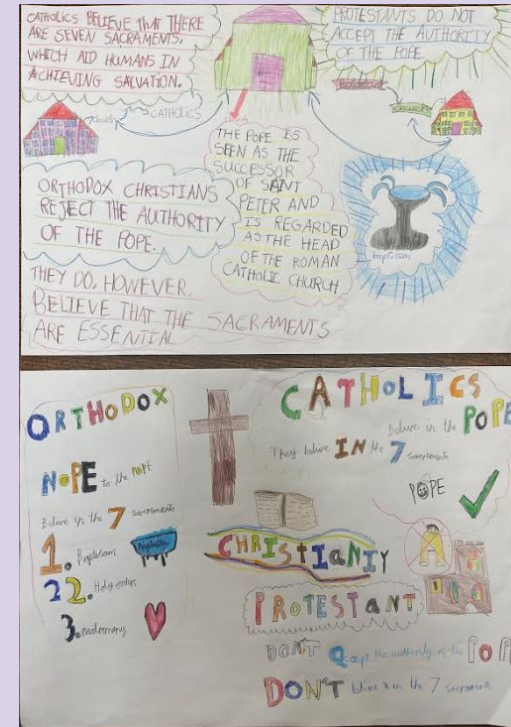 CATHOLICS BELIEVE THAT THERE
ARE SEVEN SACRAMENTS,
WHICH AID HUMANS IN
ACHIEVING SALVATION.
PROTESTANTS DO NOT
ACCEPT THE AUTHORITY
OF THE POPE
church
CATHOLICS
church
THE POPE IS
SEEN AS THE
SUCCESSOR
OF SAINT
PETER AND
IS REGARDED
AS THE HEAD
OF THE ROMAN
CATHOLIC CHURCH
ORTHODOX CHRISTIANS
REJECT THE AUTHORITY
OF THE POPE.
baptism
THEY DO, HOWEVER.
BELIEVE THAT THE SACRAMENTS
ARE ESSENTIAL
ORTHODOX
NOPE to the POPE
Belive in the 7 sacraments
1. Baptism
22. Holy orders
3. matrimony
CATHOLICS
Belive in the POPE
They belive IN the 7 sacraments
POPE
CHRISTIANIY
PROTESTANT
DON'T accept the authority of the POPE
DON'T belive in the 7 sacraments